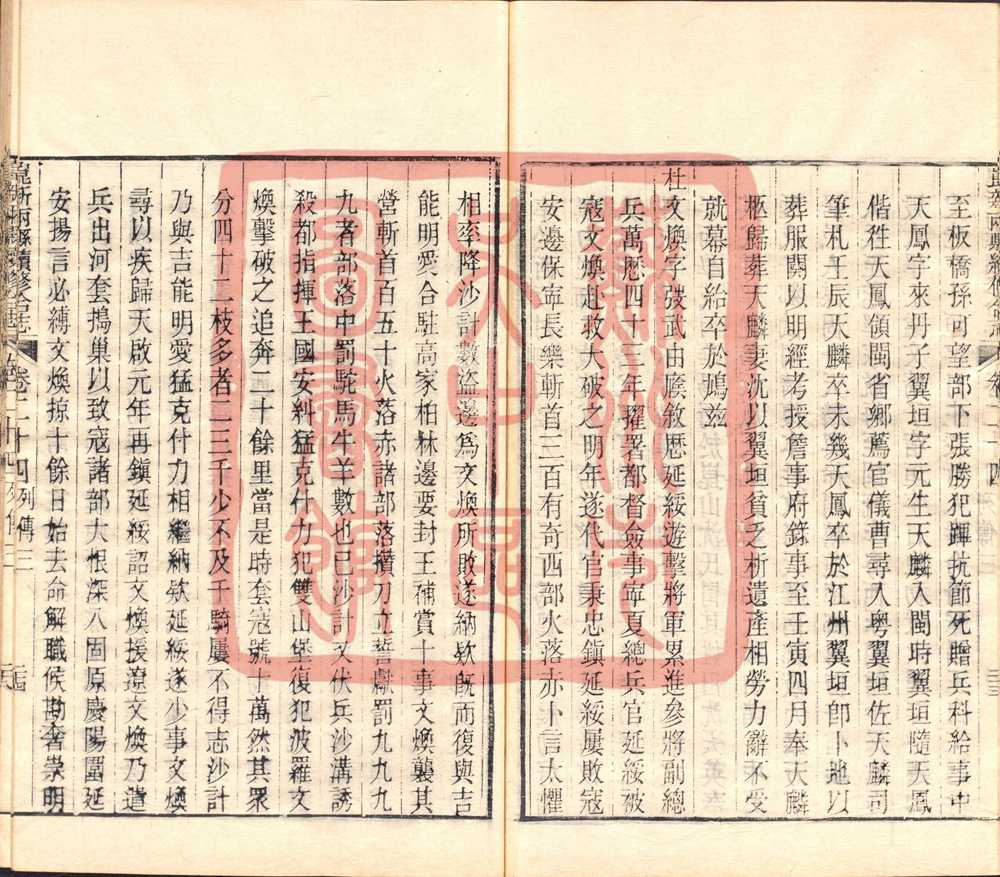 至板橋孫可望部下張勝犯蹕抗節死贈兵科給事中
天鳳字來丹子翼垣字元生天麟入閩時翼垣隨天鳳
偕徃天鳳領閩省鄉薦官儀曹尋入粤翼垣佐天麟司
筆札壬辰天麟卒未幾天鳳卒於江州翼垣卽卜地以
葬服闋以明經考授詹事府錄事至壬寅四月奉天麟
柩歸葬天麟妻沈以翼垣貧乏析遺產相勞力辭不受
就幕自給卒於鳲兹
杜文煥字弢武由廕敘歴延綏遊擊將軍累進參將副總
兵萬歴四十三年擢署都督僉事寧夏總兵官延綏被
寇文煥赴救大破之明年遂代官秉忠鎮延綏屢敗寇
安邊保寧長樂斬首三百有奇西部火落赤卜言太懼
相率降沙計數盜邊爲文煥所敗遂納欵旣而復與吉
能明愛合駐高家柏林邊要封王補賞十事文煥襲其
營斬首百五十火落赤諸部落攢刀立誓獻罰九九九
九者部落中罰駝馬牛羊數也已沙計又伏兵沙溝誘
殺都指揮王國安糾猛克什力犯雙山堡復犯波羅文
煥擊破之追奔二十餘里當是時套寇號十萬然其眾
分四十二枝多者二三千少不及千騎屢不得志沙計
乃與吉能明愛猛克什力相繼納欵延綏遂少事文煥
尋以疾歸天啟元年再鎮延綏詔文煥援遼文煥乃遣
兵出河套搗巢以致寇諸部大恨深入固原慶陽圍延
安揚言必縛文煥掠十餘日始去命解職候勘奢崇明
崑新兩縣續修合志 卷二十四 列傳三
蘇州市
吳中區
圖書館